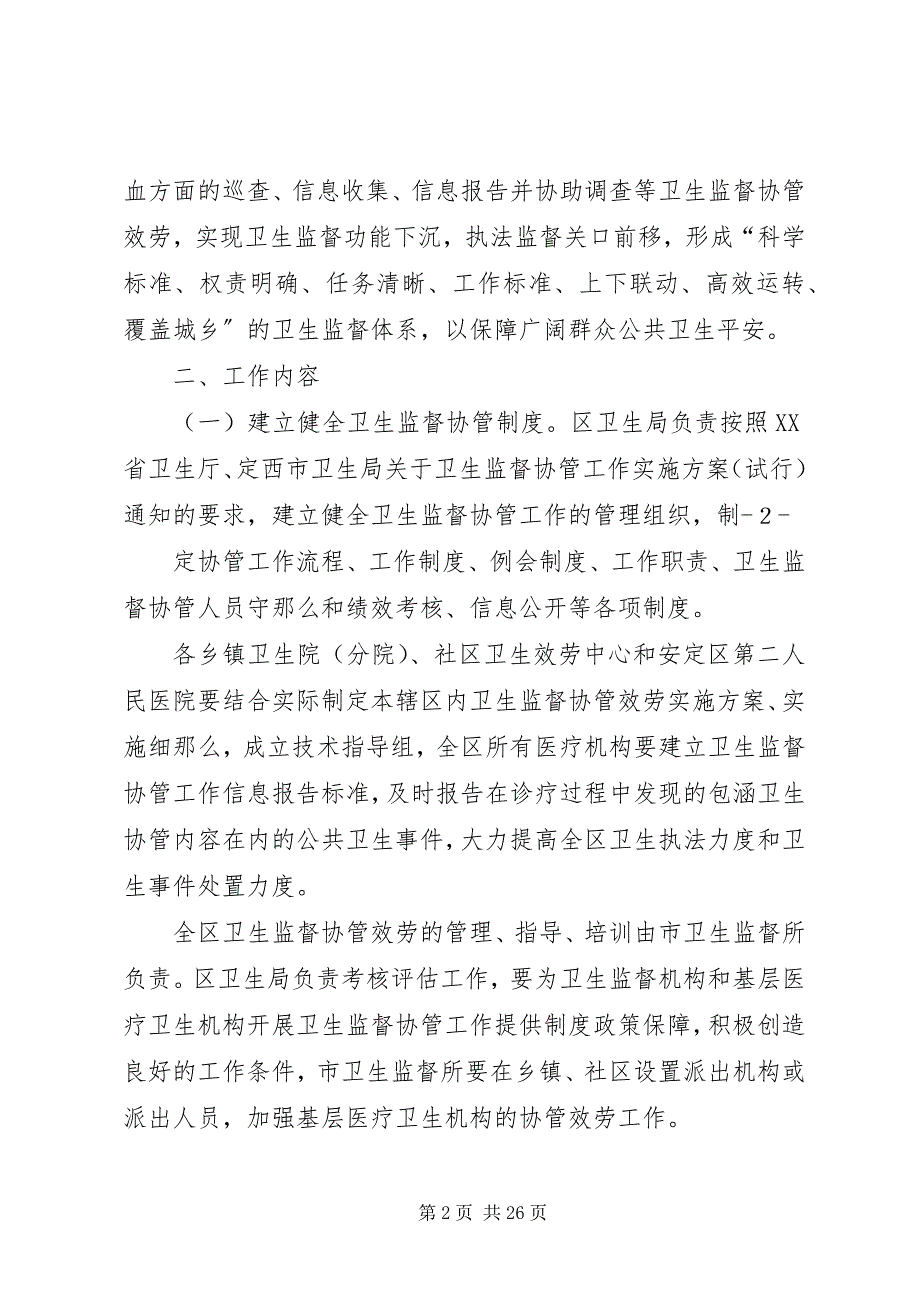 血方面的巡查、信息收集、信息报告并协助调查等卫生监督协管
效劳，实现卫生监督功能下沉，执法监督关口前移，形成“科学
标准、权责明确、任务清晰、工作标准、上下联动、高效运转、
覆盖城乡〞的卫生监督体系，以保障广阔群众公共卫生平安。
二、工作内容
（一）建立健全卫生监督协管制度。区卫生局负责按照 XX
省卫生厅、定西市卫生局关于卫生监督协管工作实施方案（试行）
通知的要求，建立健全卫生监督协管工作的管理组织，制-2-
定协管工作流程、工作制度、例会制度、工作职责、卫生监
督协管人员守那么和绩效考核、信息公开等各项制度。
各乡镇卫生院（分院）、社区卫生效劳中心和安定区第二人
民医院要结合实际制定本辖区内卫生监督协管效劳实施方案、实
施细那么，成立技术指导组，全区所有医疗机构要建立卫生监督
协管工作信息报告标准，及时报告在诊疗过程中发现的包涵卫生
协管内容在内的公共卫生事件，大力提高全区卫生执法力度和卫
生事件处置力度。
全区卫生监督协管效劳的管理、指导、培训由市卫生监督所
负责。区卫生局负责考核评估工作，要为卫生监督机构和基层医
疗卫生机构开展卫生监督协管工作提供制度政策保障，积极创造
良好的工作条件，市卫生监督所要在乡镇、社区设置派出机构或
派出人员，加强基层医疗卫生机构的协管效劳工作。
第 2 页 共 26 页